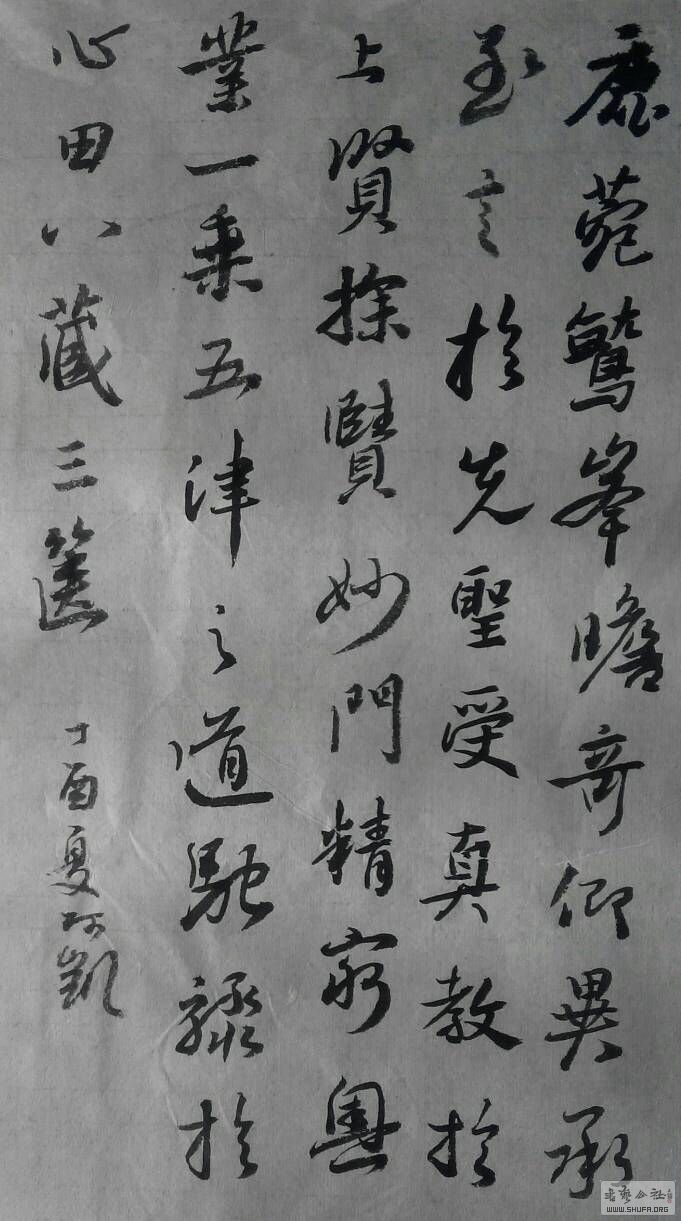 鹿菀鷲峯瞻奇仰異承
至言於先聖受真教於
上賢探賾妙門精窮奧
業一乘五津之道馳驟於
心田八藏三篋
丁酉夏 凱
WWW.SHUFA.ORG